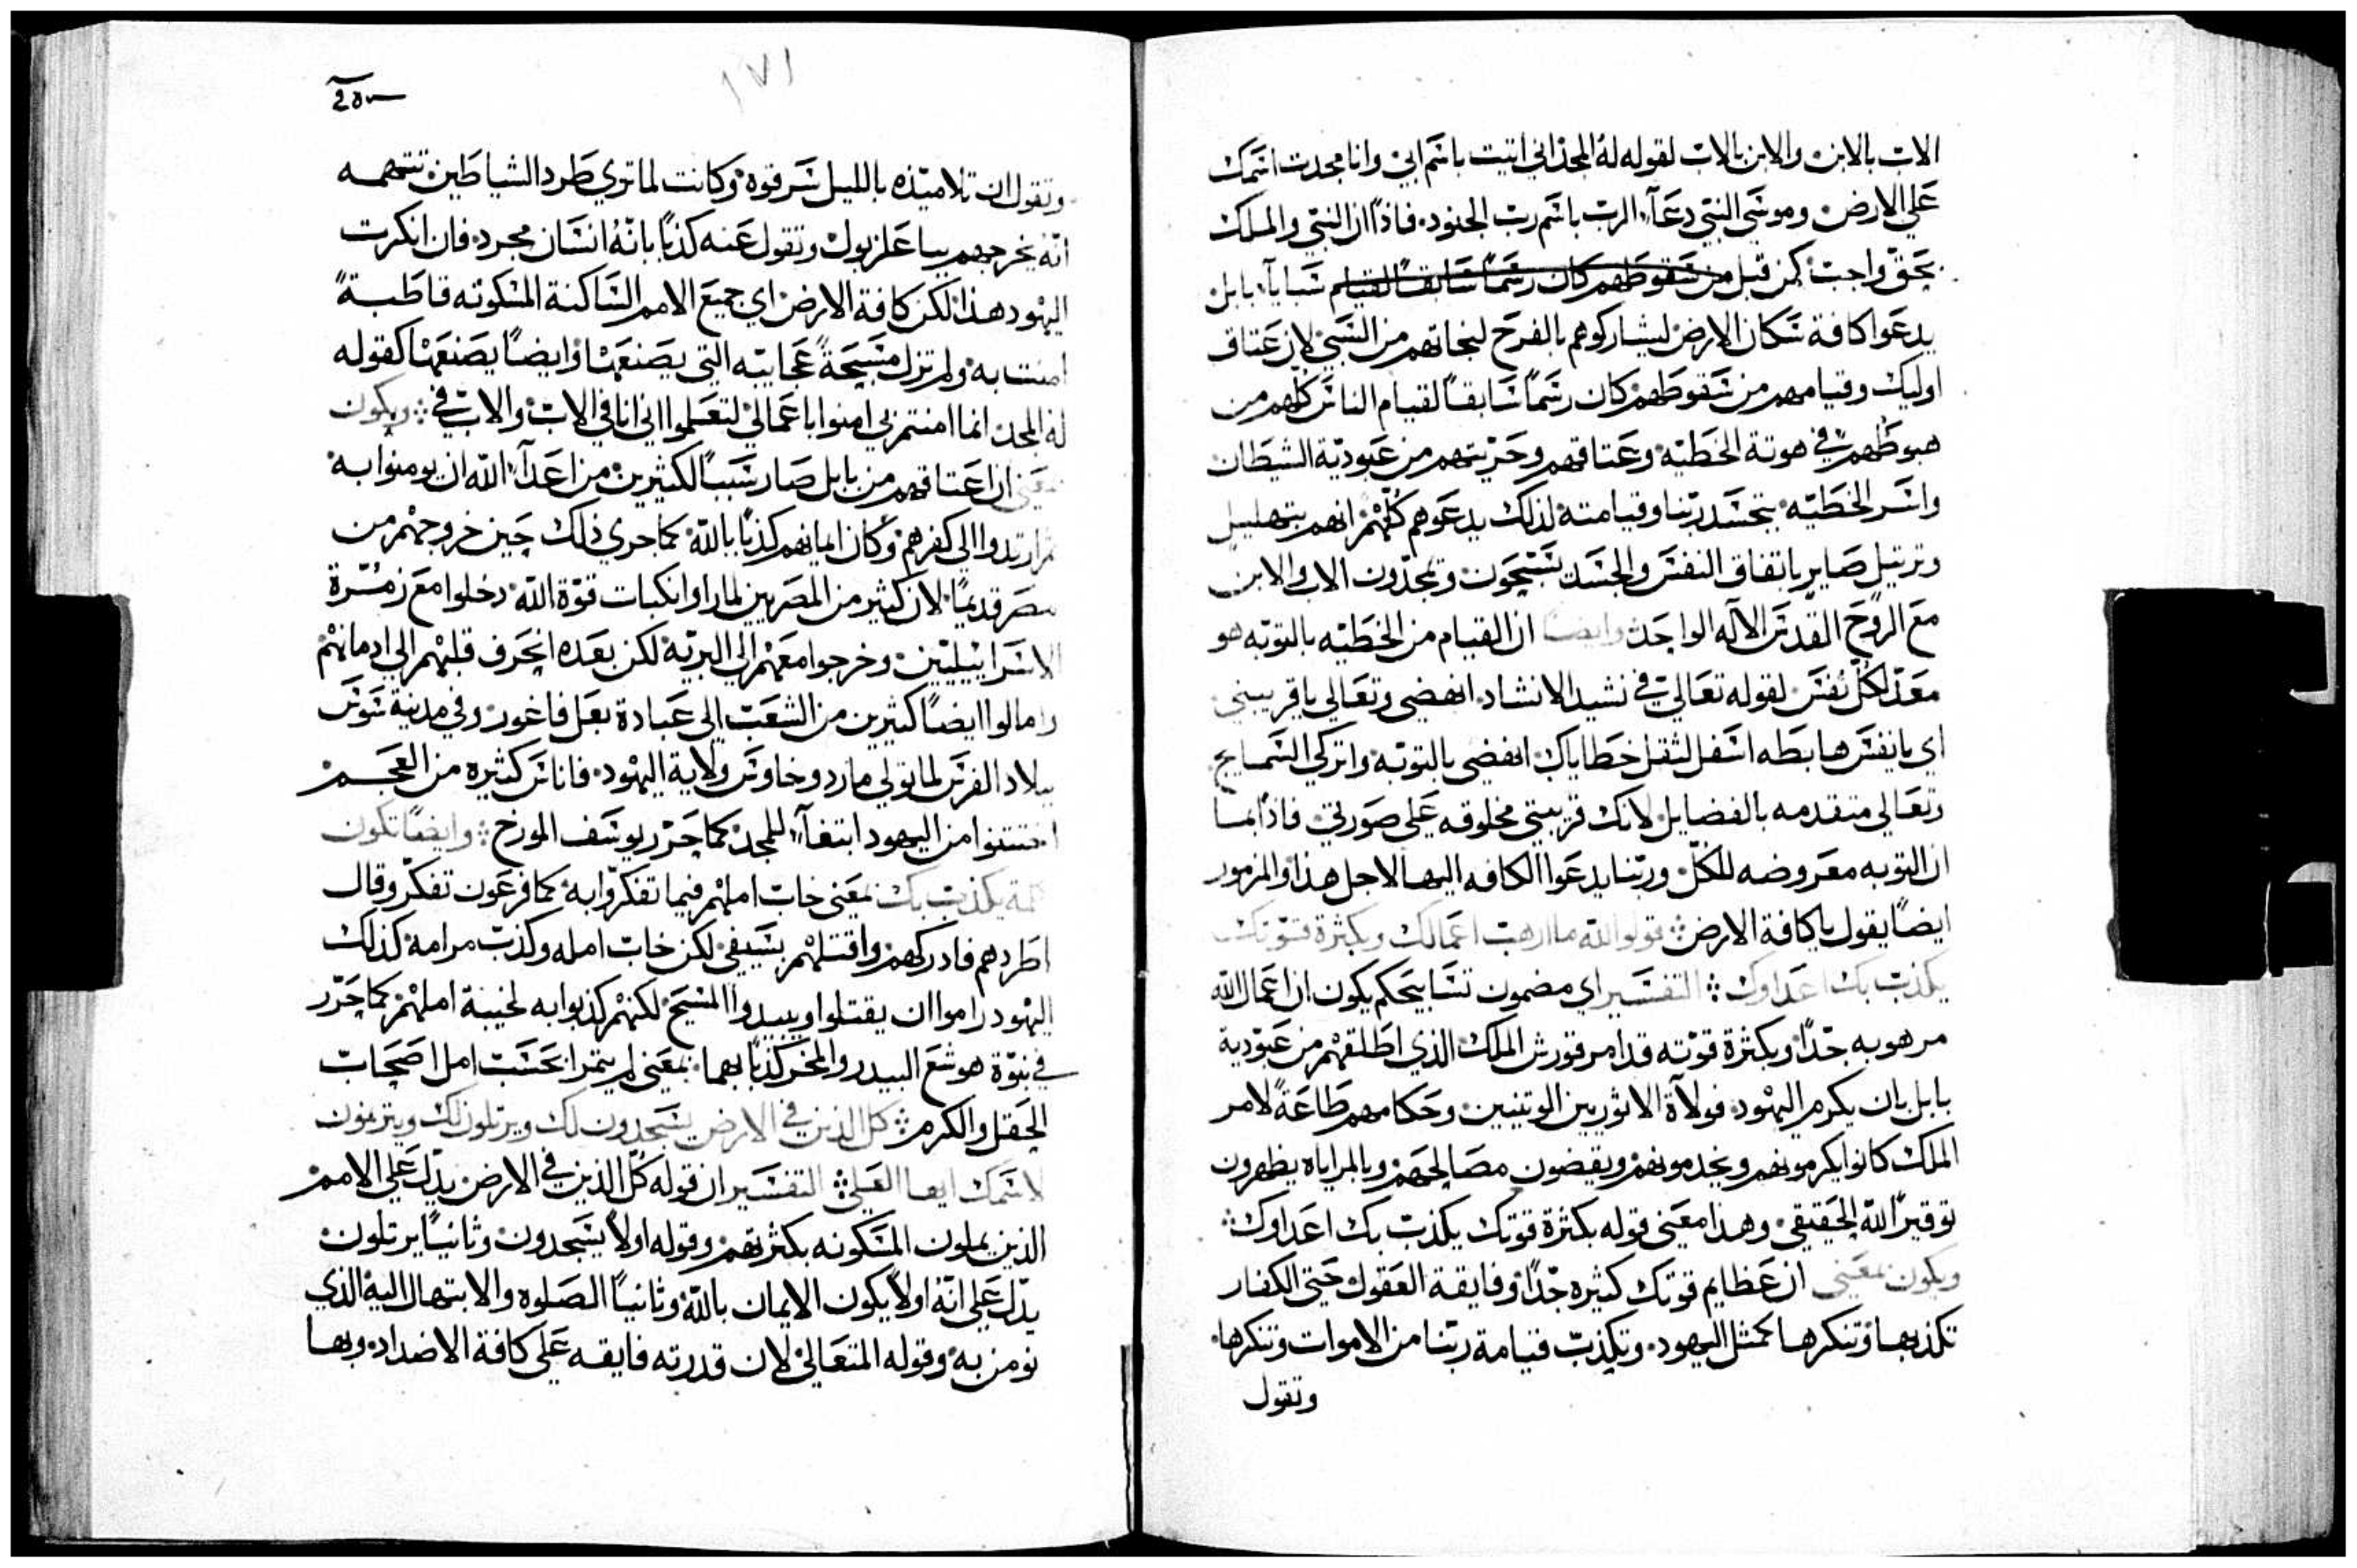 الاب بالابن والابن بالاب لقوله له المجد اني اتيت باسم ابي وانا مجدت اسمك
على الارض وموسى النبي دعا الرب باسم رب الجنود فاذًا ان النبي والملك
بحق واجب كمن قبل من سقوطهم كان رسمًا سابقًا لقيام سبايا بابل
يدعوا كافة سكان الارض ليشاركوهم بالفرح لنجاتهم من السبي لان عتاق
اوليك وقيامهم من سقوطهم كان رسمًا سابقًا لقيام الناس كلهم من
هبوطهم في هوتة الخطيه وعتاقهم وحريتهم من عبودية الشيطان
واسر الخطيه بتجسد ربنا وقيامته لذلك يدعوهم كلهم انهم بتهليل
وترتيل صاير باتفاق النفس والجسد يسبحون ويمجدون الاب والابن
مع الروح القدس الاله الواحد وايضًا ان القيام من الخطيه بالتوبه هو
معد لكل نفس لقوله تعالى في نشيد الانشاد انهضي وتعالي ياقريبتي
اي يانفس هابطه اسفل لثقل خطاياك انهضي بالتوبه واتركي السماجح
وتعالي متقدمه بالفضايل لانك قريبتي مخلوقه على صورتي فاذًا بما
ان التوبه معروضه للكل وربنا يدعوا الكافه اليها لاجل هذا والمزمور
ايضًا يقول ياكافة الارض قولوا لله ما ارهب اعمالك وبكثرة قوتك
يكذب بك اعداوك التفسير اي مضمون تسابيحكم يكون ان اعمال الله
مرهوبه جدًا وبكثرة قوته قد امر قورش الملك الذي اطلقهم من عبودية
بابل بان يكرم اليهود فولاة الاثوريين الوتنيين وحكامهم طاعةً لامر
الملك كانوا يكرمونهم ويخدمونهم ويقضون مصالحهم وبالمراياه يظهرون
توقيرًا لله الحقيقي وهذا معنى قوله بكثرة قوتك يكذب بك اعداوك
ويكون بمعنى ان عظايم قوتك كثيره جدًا وفايقة العقول حتى الكفار
تكذبها وتنكرها كمثل اليهود وتكذب قيامة ربنا من الاموات وتنكرها
وتقول
١٧١
وتقول ان تلاميذه بالليل سرقوه وكانت لما تري طرد الشياطين تتهمه
انه يخرجهم ببا علزبول وتقول عنه كذبًا بانه انسان مجرد فان انكرت
اليهود هذا لكن كافة الارض اي جميع الامم الساكنة المسكونه قاطبةً
امنت به ولم تزل مسبحةً عجايبه التي يصنعها وايضًا يصنعها كقوله
له المجد انما امنتم بي امنوا باعمالي لتعلموا اني انا في الاب والاب في ويكون
بمعنى ان اعتاقهم من بابل صار سببًا لكثيرين من اعداء الله ان يومنوا به
ثم ارتدوا الى كفرهم وكان ايمانهم كذبًا بالله كما جري ذلك حين خروجهم من
مصر قديمًا لان كثير من المصريين لما راوا نكبات قوة الله دخلوا مع زمرة
الاسراييليين وخرجوا معهم الى البريه لكن بعده انحرف قلبهم الى ادمانهم
وامالوا ايضًا كثيرين من الشعب الى عبادة بعل فاغور وفي مدينة سوس
ببلاد الفرس لما تولي ماردوخاوس ولاية اليهود فاناس كثيره من العجم
اختتنوا من اليهود ابتغاء للمجد كما حرر يوسف المورخ وايضًا تكون
يكذب بك بمعنى خاب املهم فيما تفكروا به كما فرعون تفكر وقال
اطردهم فادركهم واقتلهم بسيفي لكن خاب امله وكذب مرامه كذلك
اليهود راموا ان يقتلوا ويبيدوا المسيح لكنهم كذبوا به لخيبة املهم كما حرر
في نبوة هوشع البيدر والمخر كذبا بهما بمعنى لم يتمرا بحسب امل اصحاب
الحقل والكرم كل الذين في الارض يسجدون لك ويرتلون لك ويترنمون
لاسمك ايها العلي التفسير ان قوله كل الذين في الارض يدل على الامم
الذين يملون المسكونه بكثرتهم وقوله اولًا يسجدون وثانيًا يرتلون
يدل على انه اولًا يكون الايمان بالله وثانيًا الصلوه والابتهال اليه الذي
نومن به وقوله المتعالي لان قدرته فايقه على كافة الاضداد وبها